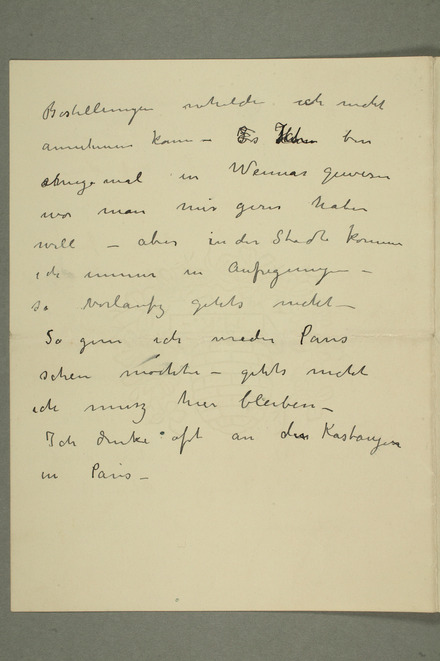 Bestellungen welche ich nicht
annehmen kann – Ich bin
einige mal in Weimar gewesen
wo man mich gern haben
will – aber in der Stadt komme
ich immer in Aufregungen –
so vorläufig gehts nicht –
So gern ich wieder Paris
sehen möchte – gehts nicht
ich musz hier bleiben –
Ich denke oft an den Kastanyen
in Paris –